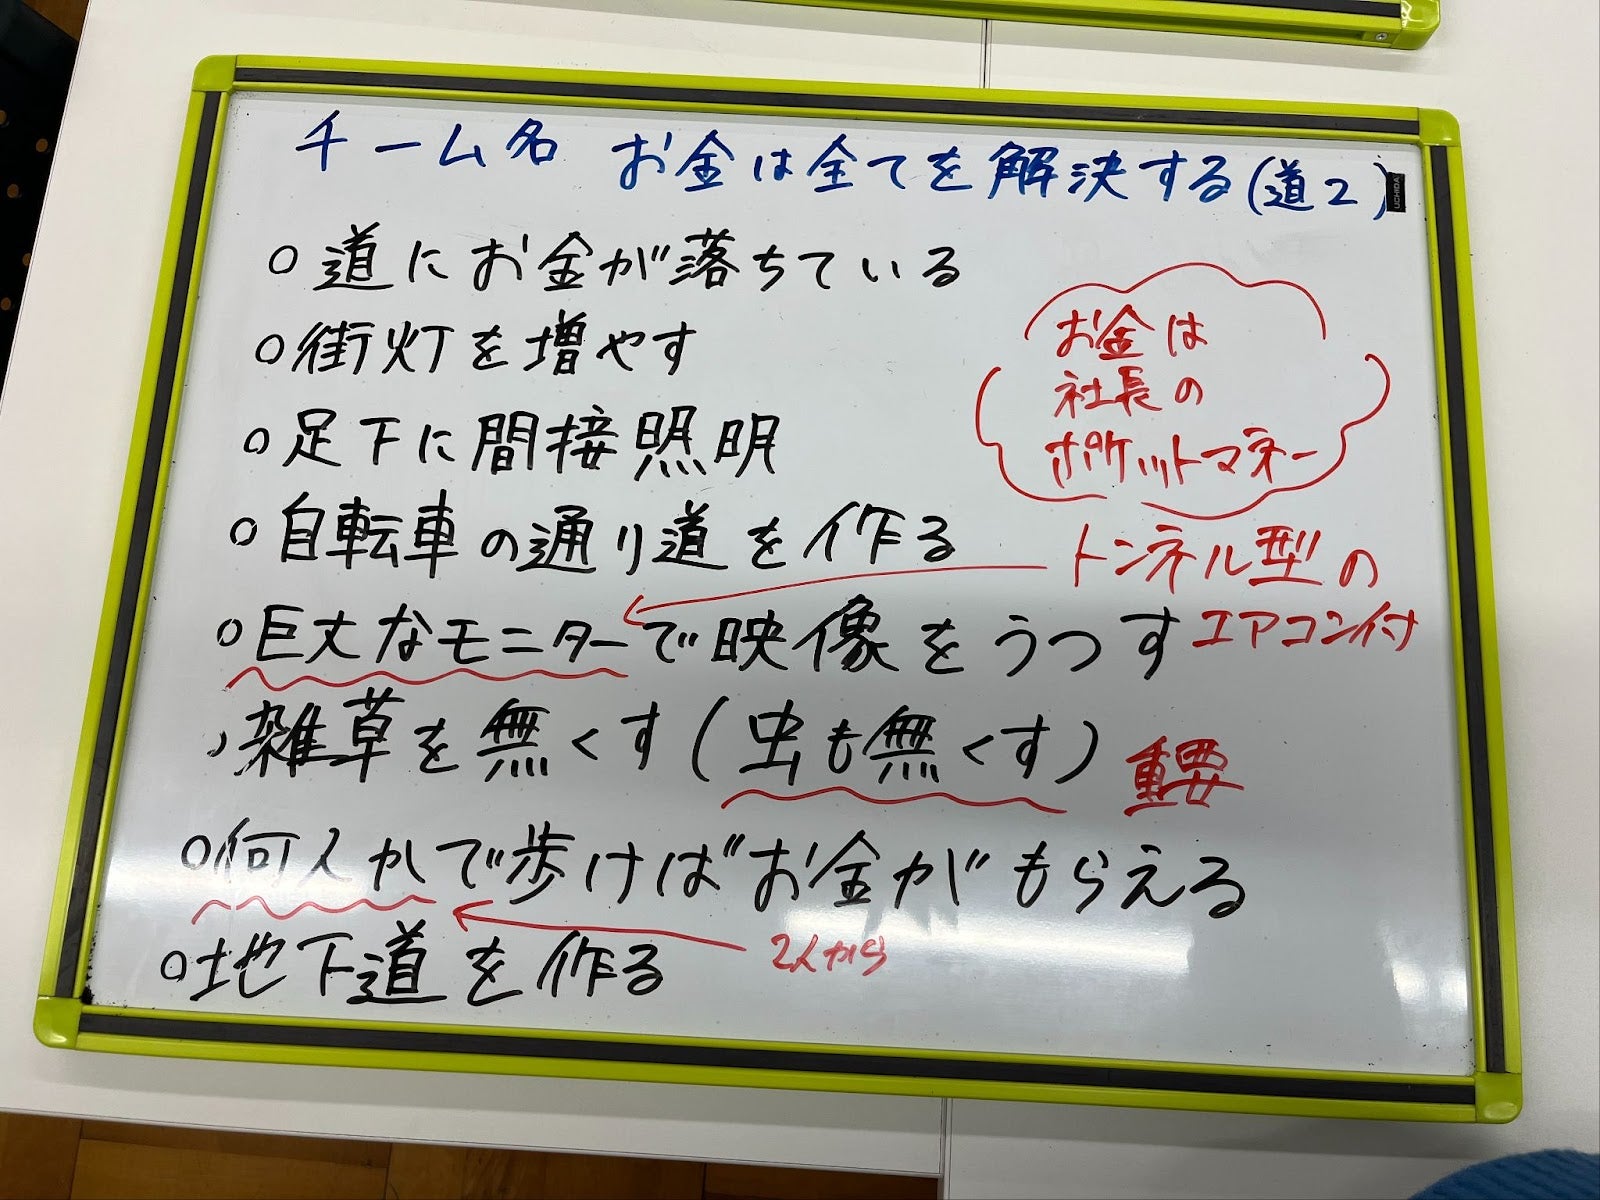 チーム名 お金は全てを解決する(道2)
UCHIDA
○道にお金が落ちている
○街灯を増やす
お金は
社長の
ポケットマネー
○足下に間接照明
○自転車の通り道を作る
トンネル型の
エアコン付
○巨大なモニターで映像をうつす
雑草を無くす(虫も無くす)
重要
○何人かで歩けば"お金が"もらえる
2人から
○地下道を作る